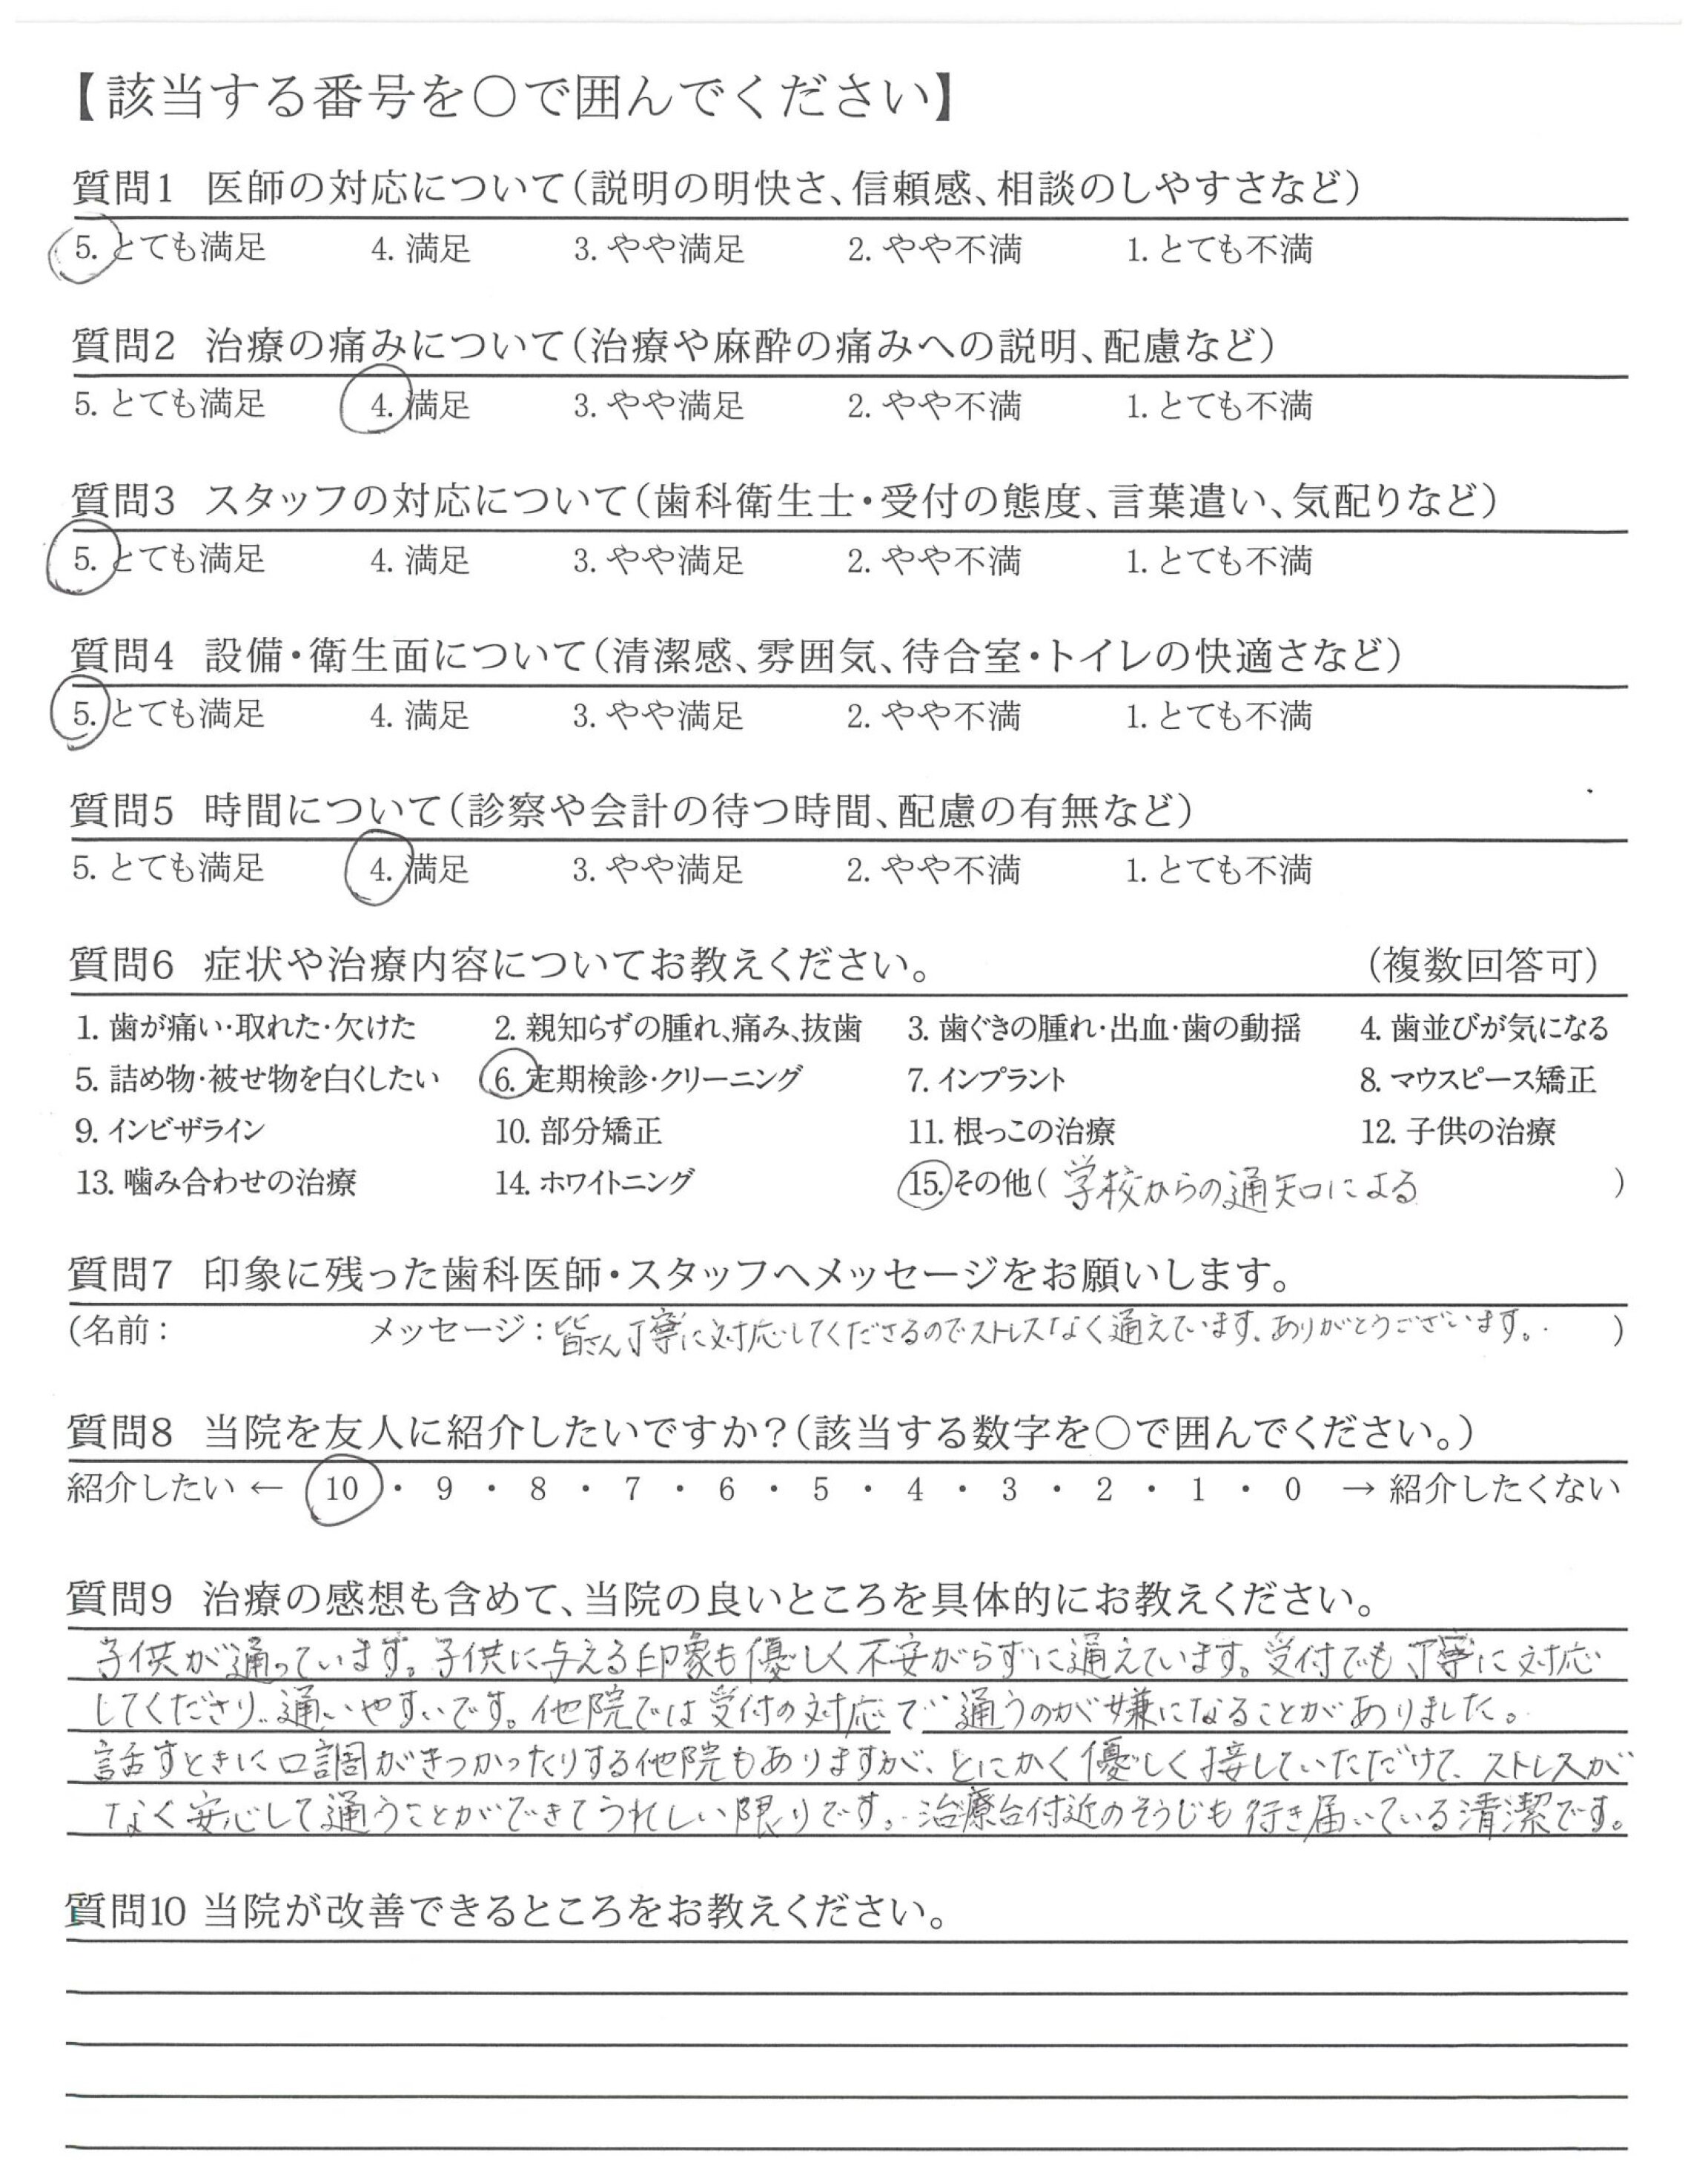 【該当する番号を○で囲んでください】
質問1 医師の対応について(説明の明快さ、信頼感、相談のしやすさなど)
5. とても満足 4. 満足 3. やや満足 2. やや不満 1. とても不満
質問2 治療の痛みについて(治療や麻酔の痛みへの説明、配慮など)
5. とても満足 4. 満足 3. やや満足 2. やや不満 1. とても不満
質問3 スタッフの対応について(歯科衛生士・受付の態度、言葉遣い、気配りなど)
5. とても満足 4. 満足 3. やや満足 2. やや不満 1. とても不満
質問4 設備・衛生面について(清潔感、雰囲気、待合室・トイレの快適さなど)
5. とても満足 4. 満足 3. やや満足 2. やや不満 1. とても不満
質問5 時間について(診察や会計の待つ時間、配慮の有無など)
5. とても満足 4. 満足 3. やや満足 2. やや不満 1. とても不満
質問6 症状や治療内容についてお教えください。 (複数回答可)
1. 歯が痛い・取れた・欠けた 2. 親知らずの腫れ、痛み、抜歯 3. 歯ぐきの腫れ・出血・歯の動揺 4. 歯並びが気になる
5. 詰め物・被せ物を白くしたい 6. 定期検診・クリーニング 7. インプラント 8. マウスピース矯正
9. インビザライン 10. 部分矯正 11. 根っこの治療 12. 子供の治療
13. 噛み合わせの治療 14. ホワイトニング 15. その他( 学校からの通知による )
質問7 印象に残った歯科医師・スタッフへメッセージをお願いします。
(名前: メッセージ: 皆さん丁寧に対応してくださるのでストレスなく通えています。ありがとうございます。 )
質問8 当院を友人に紹介したいですか?(該当する数字を○で囲んでください。)
紹介したい ← 10 ・ 9 ・ 8 ・ 7 ・ 6 ・ 5 ・ 4 ・ 3 ・ 2 ・ 1 ・ 0 → 紹介したくない
質問9 治療の感想も含めて、当院の良いところを具体的にお教えください。
子供が通っています。子供に与える印象も優しく不安がらずに通えています。受付でも丁寧に対応
してくださり、通いやすいです。他院では受付の対応で通うのが嫌になることがありました。
話すときに口調がきつかったりする他院もありますが、とにかく優しく接していただけて、ストレスが
なく安心して通うことができてうれしい限りです。治療台付近のそうじも行き届いている清潔です。
質問10 当院が改善できるところをお教えください。